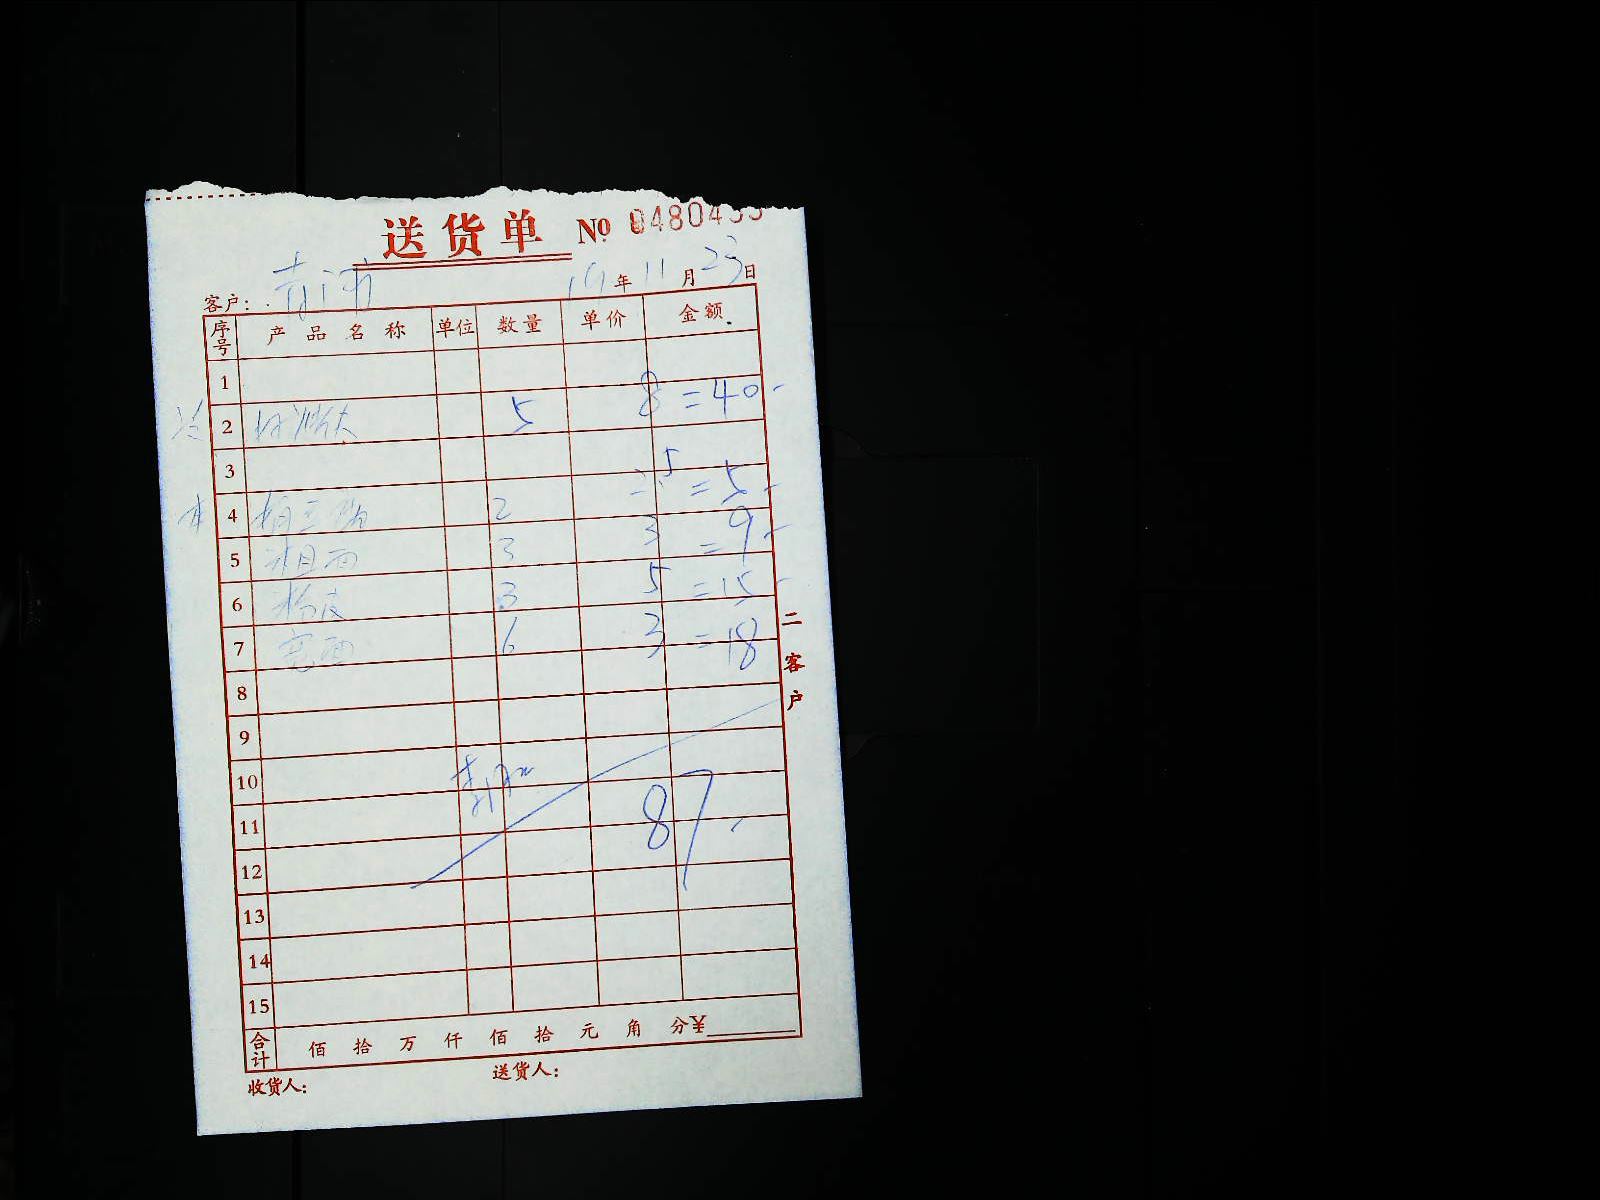 送货单 № 0480433
19年11月23日
客户:
序号 产品名称 单位 数量 单价 金额
1
2 5 8 =40-
3
4 2 2.5 =5-
5 粗面 3 3 =9-
6 粉皮 3 5 =15-
7 宽面 6 3 =18
8
9
10
11 87-
12
13
14
15
合计 佰 拾 万 仟 佰 拾 元 角 分¥
收货人: 送货人:
二客户